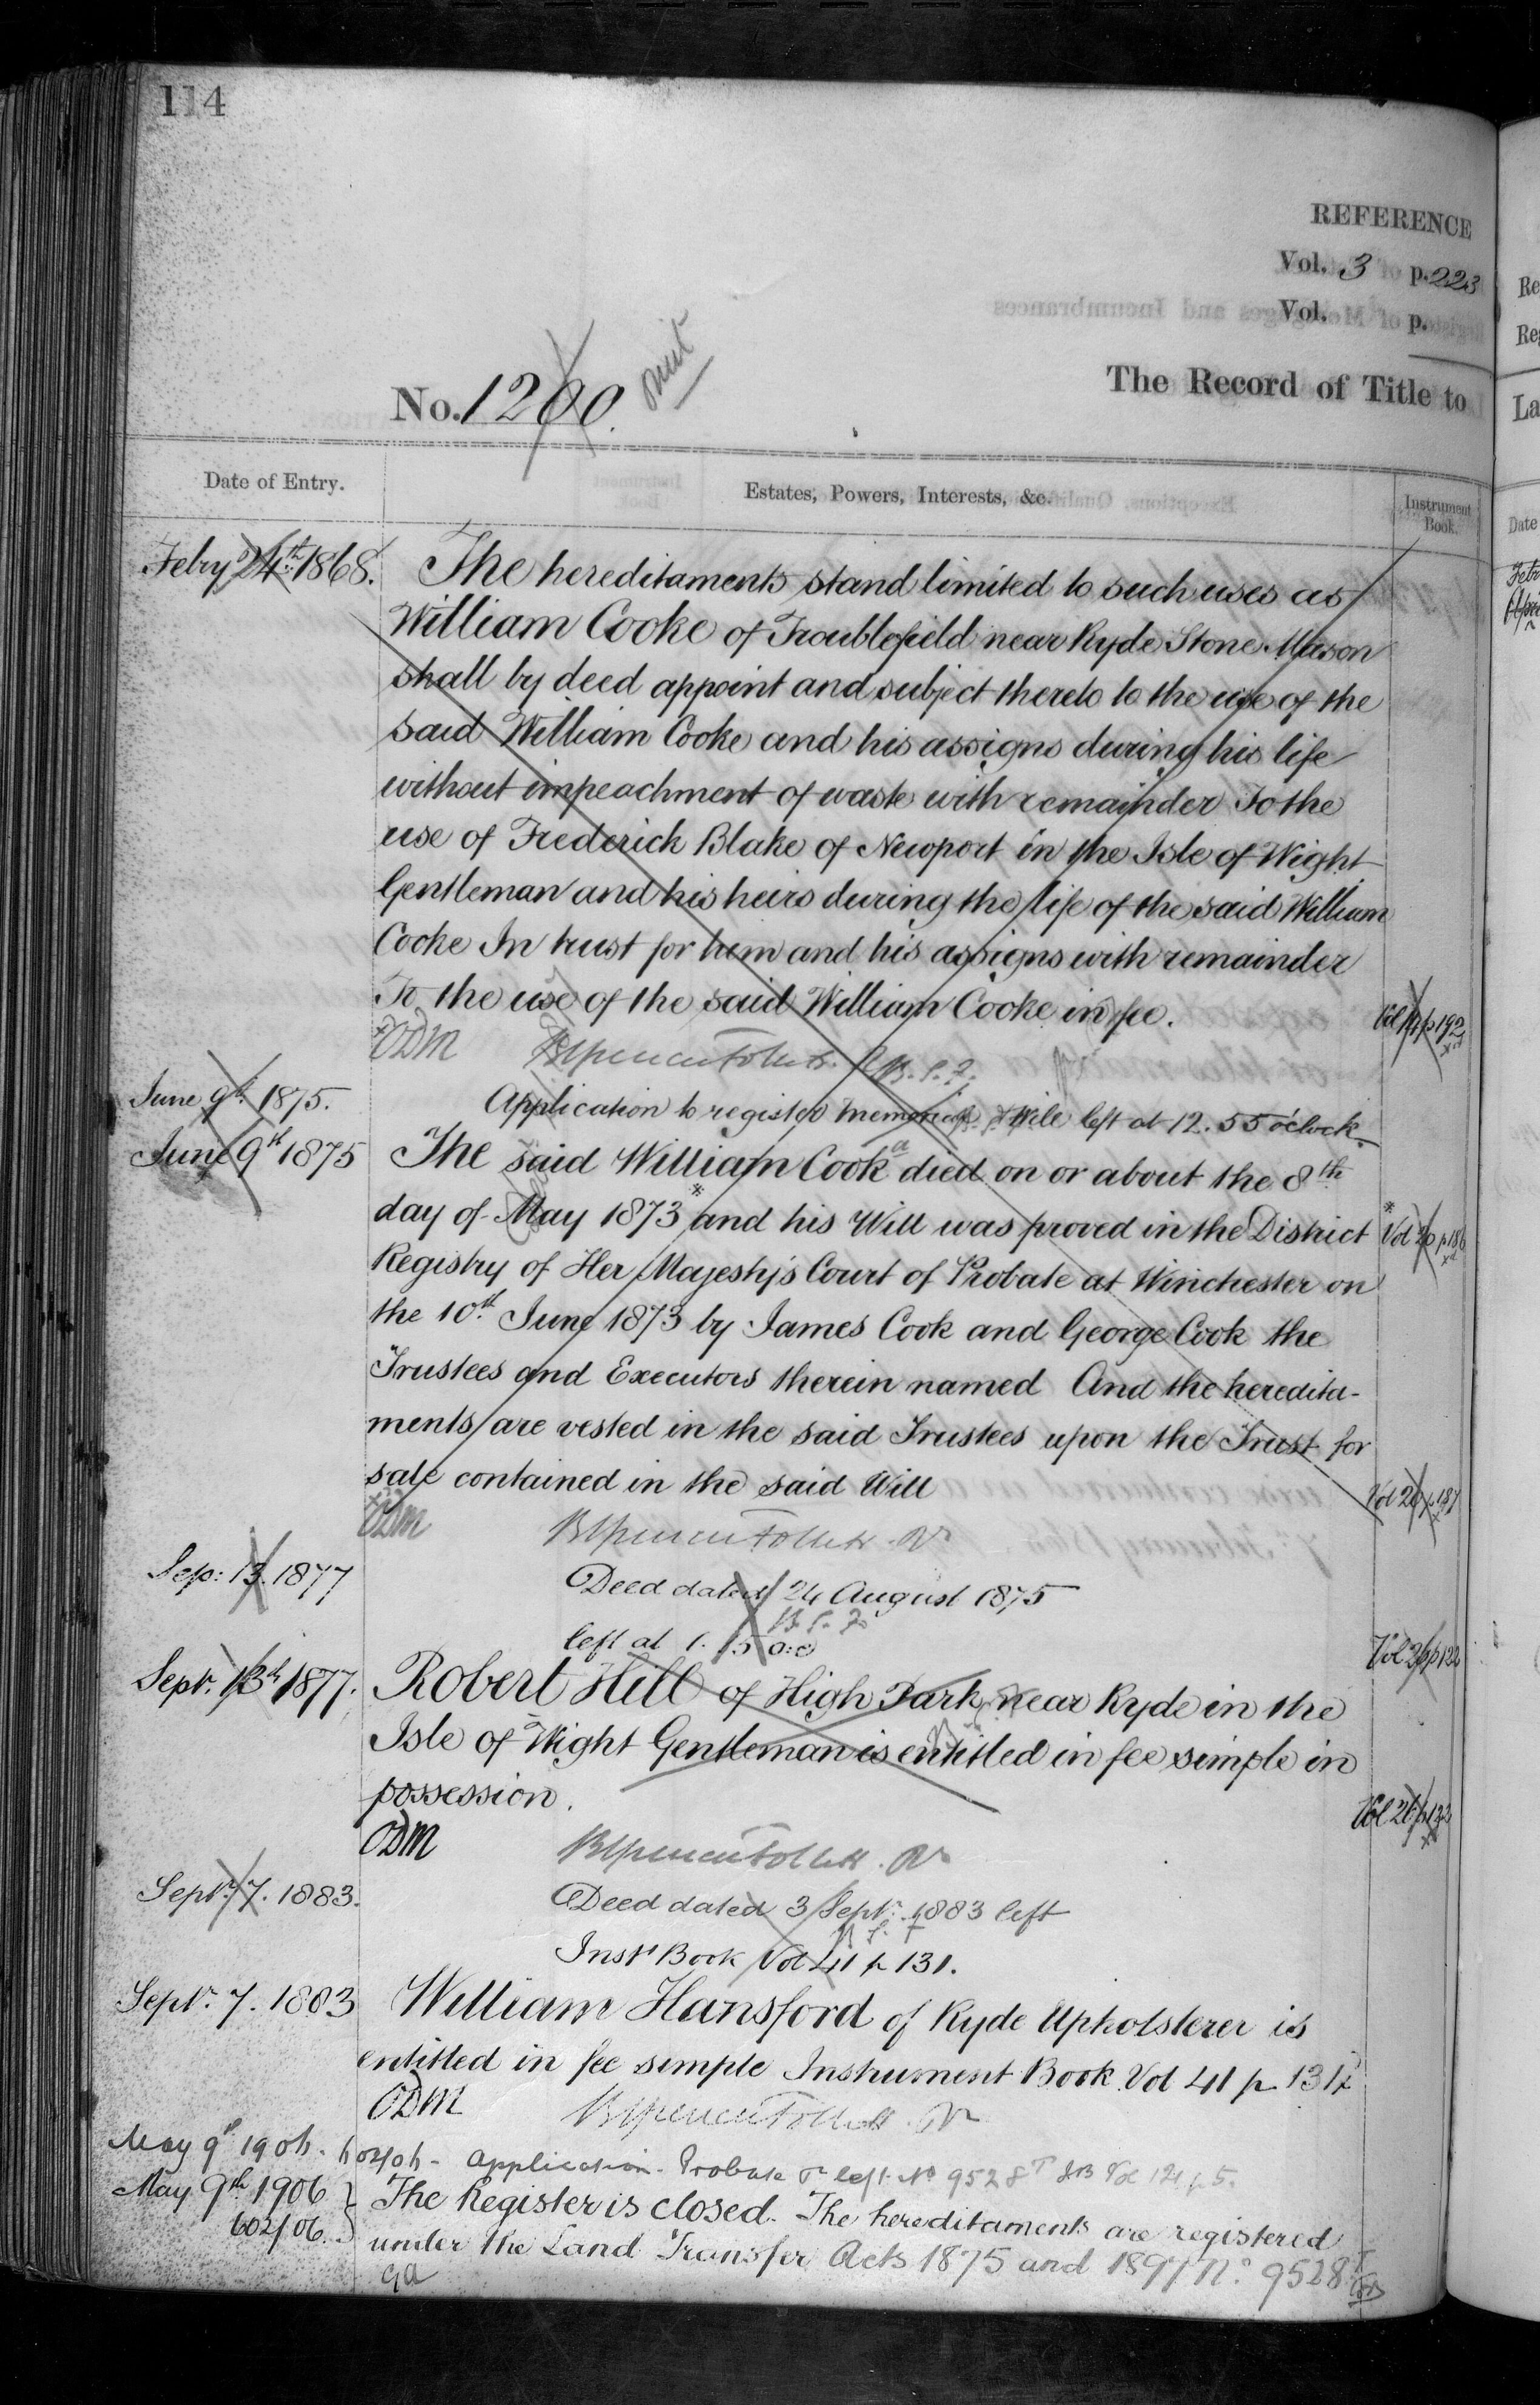 114
REFERENCE
Vol. 3 p. 223
Vol. p.
No. 1200. omit
The Record of Title to
Date of Entry.
Estates, Powers, Interests, &c.
Instrument Book.
Febry 24th 1868. The hereditaments stand limited to such uses as
William Cooke of Troublefield near Ryde Stone Mason
shall by deed appoint and subject thereto to the use of the
said William Cooke and his assigns during his life
without impeachment of waste with remainder To the
use of Frederick Blake of Newport in the Isle of Wight
Gentleman and his heirs during the life of the said William
Cooke In trust for him and his assigns with remainder
To the use of the said William Cooke in fee. Vol p 192
ODM
June 9th 1875. Application to register memorial & Will left at 12.55 o'clock
June 9th 1875 The said William Cook died on or about the 8th
day of May 1873 * and his Will was proved in the District * Vol 20 p 186
Registry of Her Majesty's Court of Probate at Winchester on
the 10th June 1873 by James Cook and George Cook the
Trustees and Executors therein named And the heredita-
ments are vested in the said Trustees upon the Trust for
sale contained in the said Will Vol 20 p 187
ODM
Sep: 13. 1877 Deed dated 24 August 1875
left at 1.15 o:c Vol 26 p 122
Sept. 13th 1877. Robert Hill of High Park near Ryde in the
Isle of Wight Gentleman is entitled in fee simple in
possession. Vol 26 p 122
ODM
Septr. 7. 1883. Deed dated 3 Septr. 1883 left
Instt Book Vol 41 p 131.
Septr. 7. 1883 William Hansford of Ryde Upholsterer is
entitled in fee simple Instrument Book Vol 41 p 131
ODM
May 9th 1906. 602/06 - Application - Probate &c left No 9528 IB Vol 121 p 5.
May 9th 1906 } The Register is closed. The hereditaments are registered
602/06. under the Land Transfer Acts 1875 and 1897 No. 9528